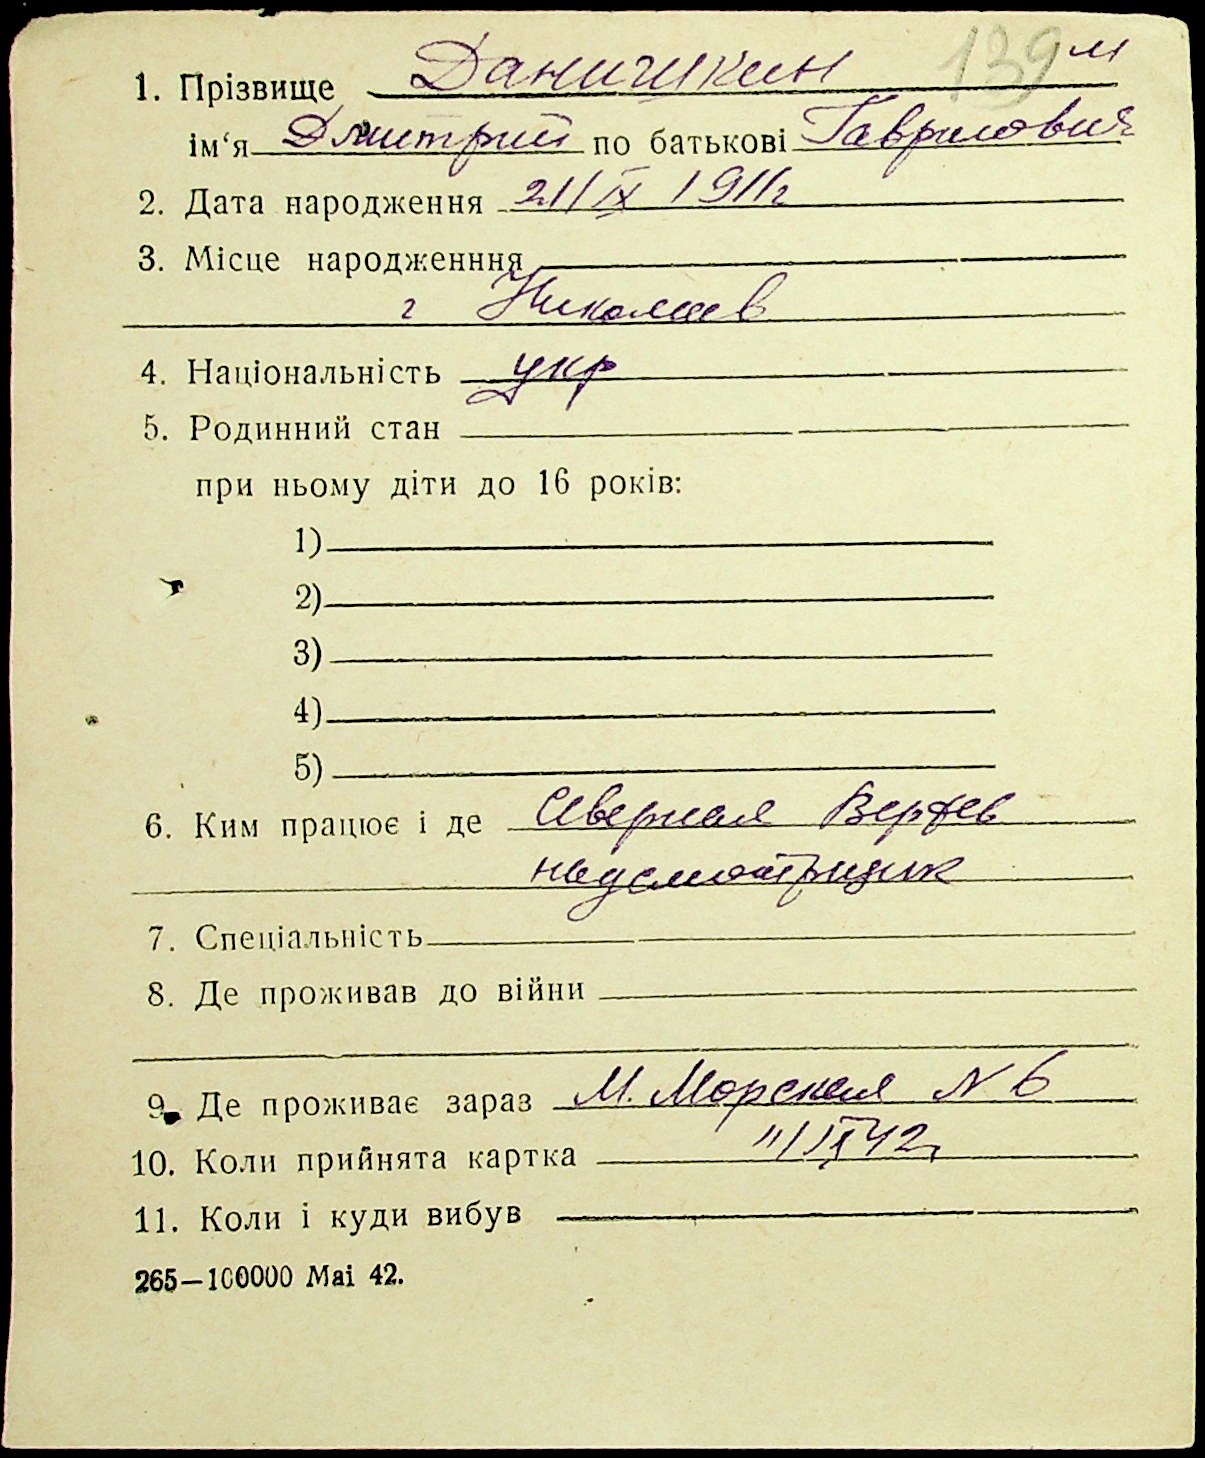 139 м
1. Прізвище Даничкин
ім‘я Дмитрий по батькові Гаврилович
2. Дата народження 21/IX 1911г
3. Місце народженння
г Николаев
4. Національність укр
5. Родинний стан
при ньому діти до 16 років:
1)
2)
3)
4)
5)
6. Ким працює і де Северная Верфев
надсмотрщик
7. Спеціальність
8. Де проживав до війни
9. Де проживає зараз М. Морская N 6
10. Коли прийнята картка
11. Коли і куди вибув
265—100000 Mai 42.